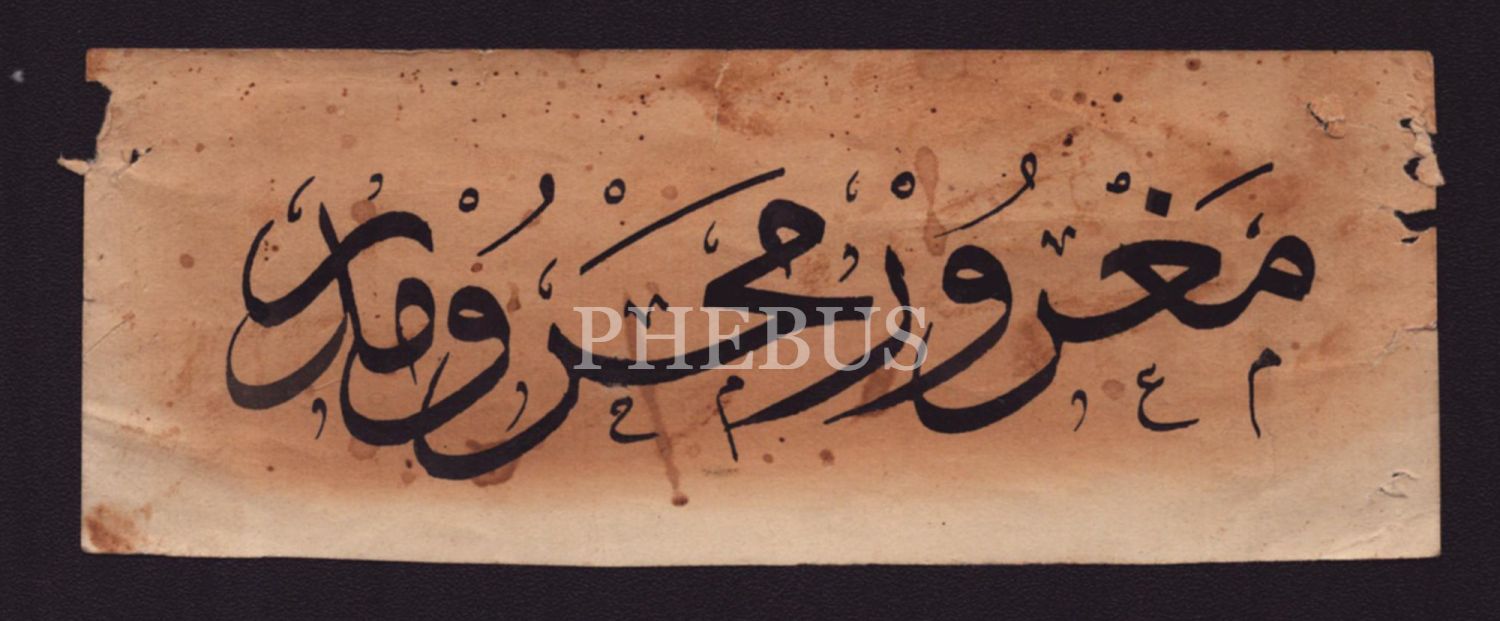 مَغْرُورْ مَحْرُومْدُرْ
PHEBUS